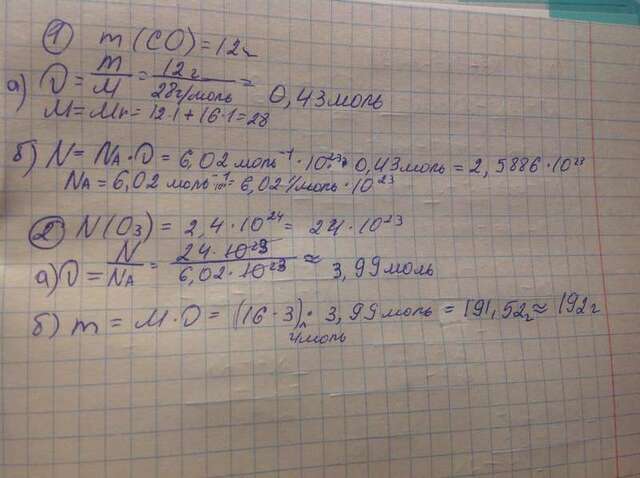 ① m (CO) = 12г
а) D = m/M = 12г/28г/моль = 0,43моль
M = Mr = 12·1 + 16·1 = 28
б) N = NA · D = 6,02 моль⁻¹ · 10²³ · 0,43моль = 2,5886 · 10²³
NA = 6,02 моль⁻¹ = 6,02 1/моль · 10²³
② N(O3) = 2,4 · 10²⁴ = 24 · 10²³
а) D = N/NA = 24 · 10²³/6,02 · 10²³ ≈ 3,99моль
б) m = M · D = (16 · 3) · 3,99моль = 191,52г ≈ 192г
г/моль